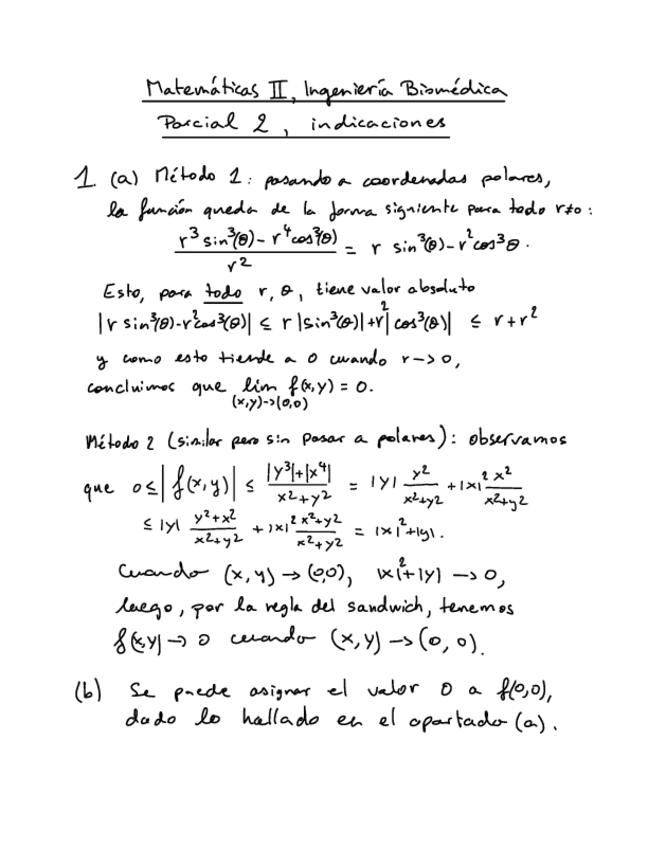 Matemáticas II, Ingeniería Biomédica
Parcial 2, indicaciones
1. (a) Método 1: pasando a coordenadas polares,
la función queda de la forma siguiente para todo r≠0:
(r³ sin³(θ) - r⁴cos³(θ)) / r² = r sin³(θ) - r²cos³θ.
Esto, para todo r, θ, tiene valor absoluto
|r sin³(θ)-r²cos³(θ)| ≤ r |sin³(θ)| + r²|cos³(θ)| ≤ r + r²
y como esto tiende a 0 cuando r->0,
concluimos que lim f(x,y) = 0.
(x,y)->(0,0)
Método 2 (similar pero sin pasar a polares): observamos
que 0≤|f(x,y)| ≤ (|y³|+|x⁴|) / (x²+y²) = |y| y²/(x²+y²) + |x|² x²/(x²+y²)
≤ |y| (y²+x²)/(x²+y²) + |x|² (x²+y²)/(x²+y²) = |x|²+|y|.
Cuando (x,y) → (0,0), |x|²+|y| -> 0,
luego, por la regla del sandwich, tenemos
f(x,y) -> 0 cuando (x,y) -> (0,0).
(b) Se puede asignar el valor 0 a f(0,0),
dado lo hallado en el apartado (a).